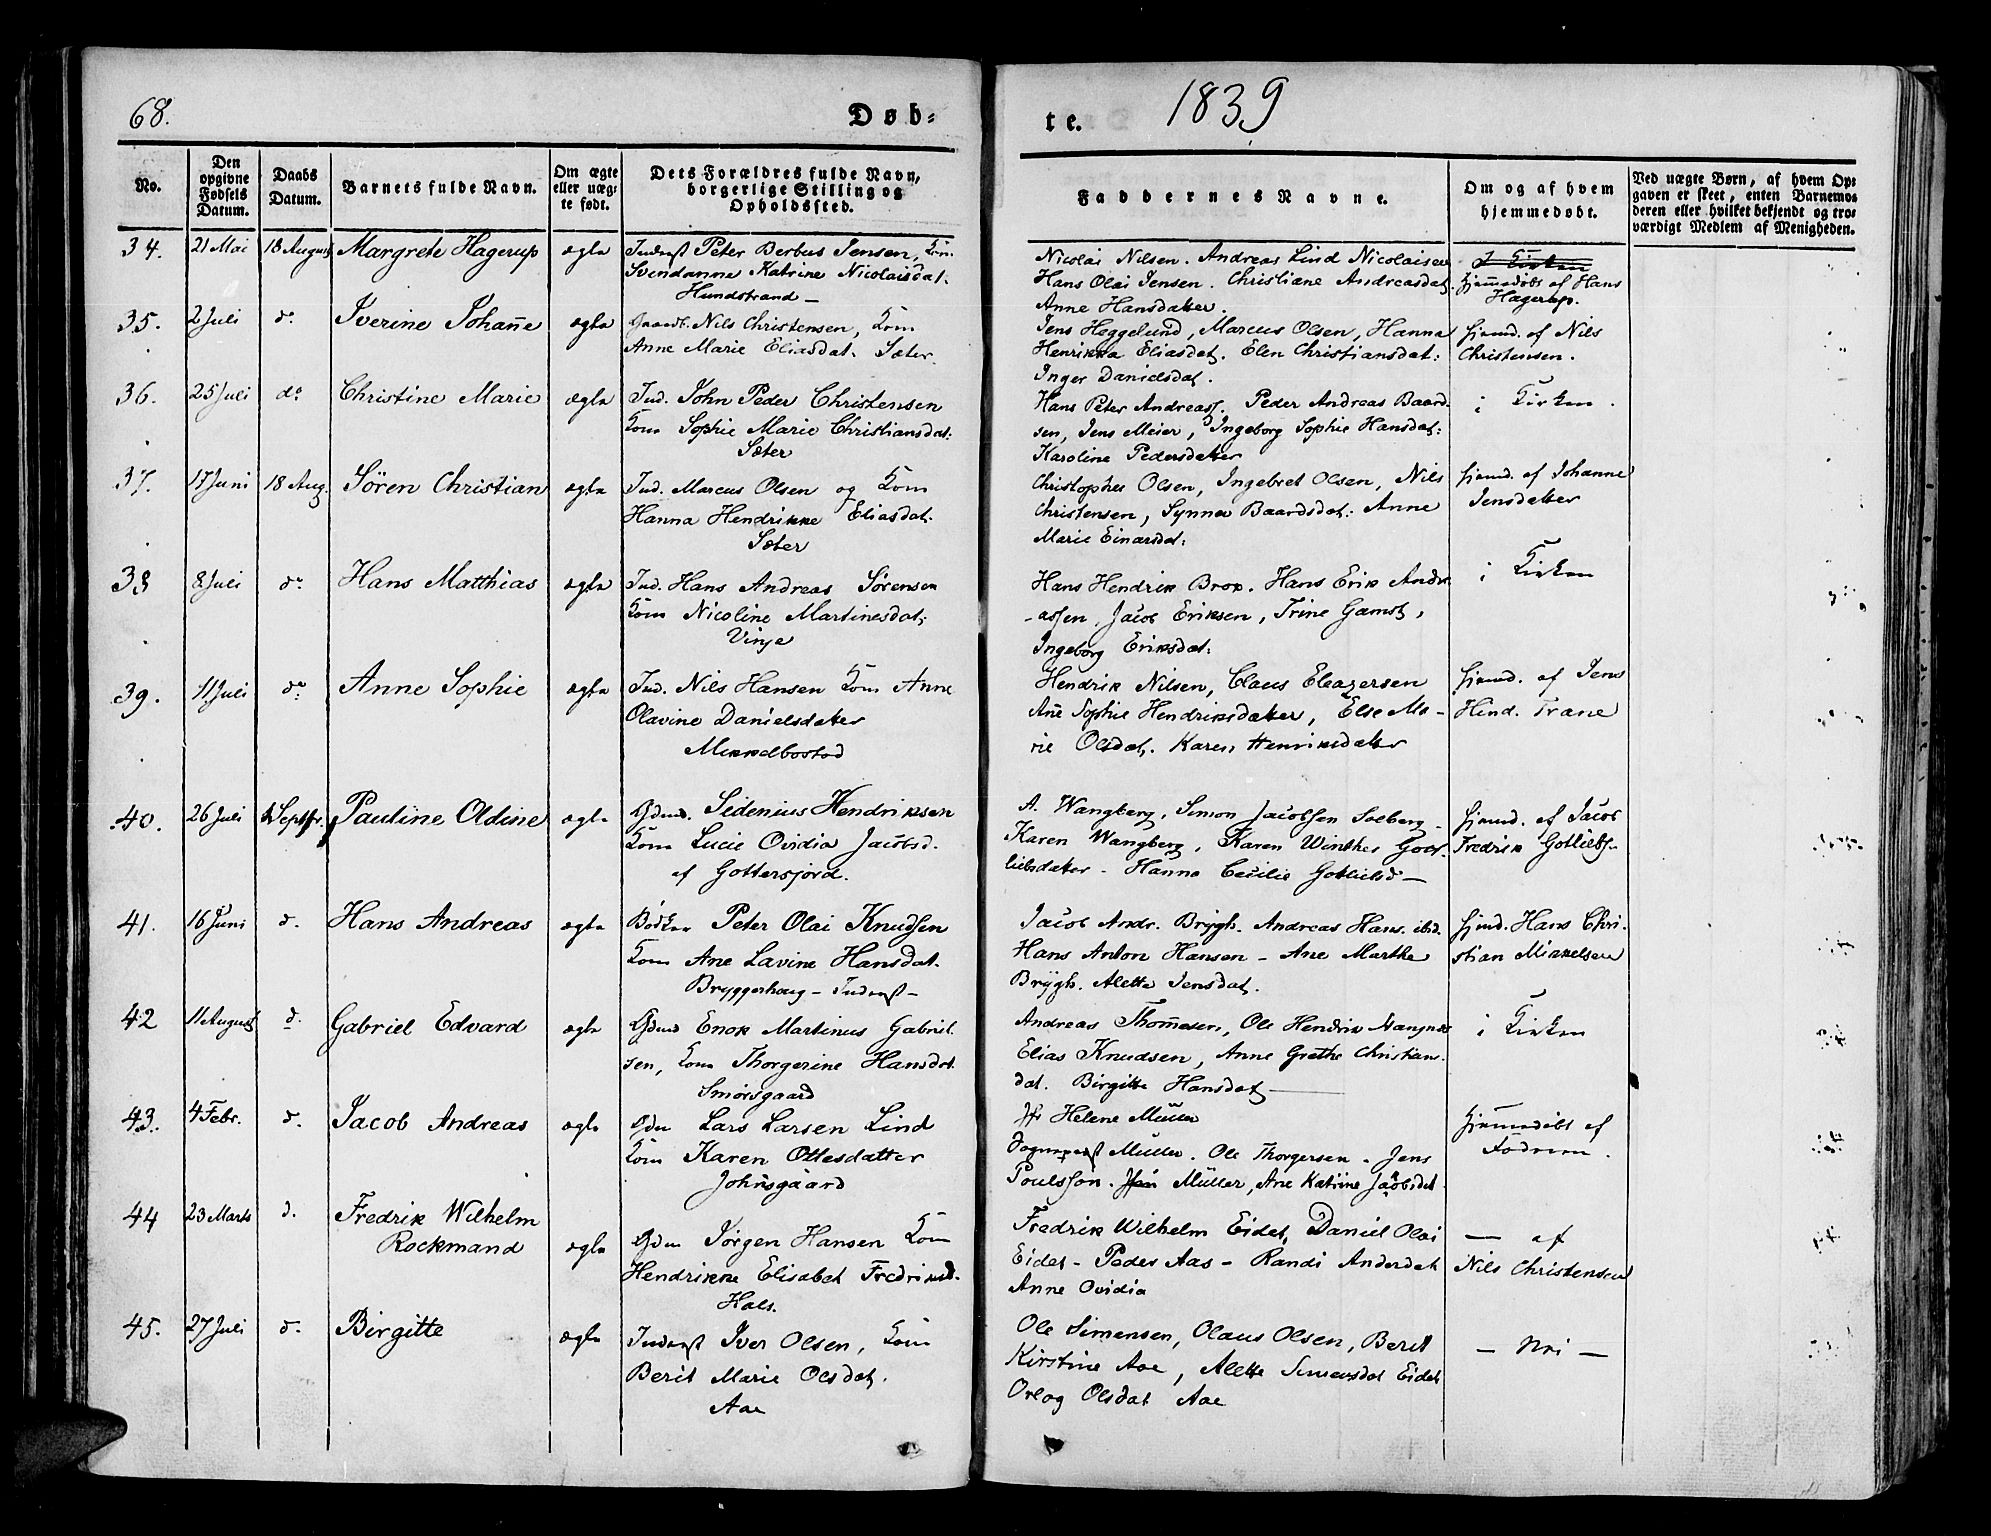 68.
Døb-
te.
1839
No.
Den opgivne Fødsels Datum.
Daabs Datum.
Barnets fulde Navn.
Om ægte eller uægte født.
Dets Forældres fulde Navn, borgerlige Stilling og Opholdssted.
Faddernes Navne.
Om og af hvem hjemmedøbt.
Ved uægte Børn, af hvem Opgaven er skeet, enten Barnemoderen eller hvilket bekjendt og troværdigt Medlem af Menigheden.
34. 21 Mai 18 August Margrete Hagerup ægte
Inderst Peter Berbus Jensen, Kone
Svendanna Katrine Nicolaisdat.
Hundstrand —
Nicolai Nilsen. Andreas Lind Nicolaisen
Hans Olai Jensen. Christiane Andreasdat.
Anne Hansdatter.
I Kirken
hjemmedøbt af Hans
Hagerup.
35. 2 Juli do Iverine Johanne ægte
Gaardb. Nils Christensen, Kone
Anne Marie Eliasdat. Sæter
Jens Heggelund, Marcus Olsen, Hanna
Henrikka Eliasdat. Elen Christiansdat:
Inger Danielsdat.
hjemd. af Nils
Christensen.
36. 25 Juli do Christine Marie ægte
Ind. John Peder Christensen
Kone Sophie Marie Christiansdat:
Sæter
Hans Peter Andreass. Peder Andreas Baard-
sen, Jens Meier, Ingeborg Sophie Hansdat:
Karoline Pedersdatter
i Kirken.
37. 17 Juni 18 Aug. Sören Christian ægte
Ind. Marcus Olsen og Kone
Hanna Hendrikke Eliasdat.
Sæter
Christopher Olsen, Ingebret Olsen, Nils
Christensen, Synna Baardsdat: Anne
Marie Einarsdat:
hjemd. af Johanne
Jensdatter
38 8 Juli do Hans Matthias ægte
Ind. Hans Andreas Sørensen
Kone Nicoline Martinesdat;
Vinje
Hans Hendrik Brox. Hans Erik Andre-
-assen, Jacob Eriksen, Trine Gamst,
Ingeborg Eriksdat:
i Kirken
39. 11 Juli do Anne Sophie ægte
Ind. Nils Hansen Kone Anne
Olavine Danielsdatter
Mikkelbostad
Hendrik Nilsen, Claus Eleazersen
Ane Sophie Hendriksdatter, Else Ma-
rie Olsdat. Karen Henriksdatter
hjemd. af Jens
Hind. Trane
40. 26 Juli 1 Septbr. Pauline Oldine ægte
Gdmd. Sidenius Hendriksen
Kone Lucie Ovidia Jacobsd.
af Gottersjord.
A. Wangberg, Simon Jacobsen Solberg -
Karen Wangberg, Karen Winther Gott-
liebsdatter - Hanna Cecilie Gotliebsd —
hjemd. af Jacob
Fredrik Gotliebs-
41. 16 Juni d. Hans Andreas ægte
Bødker Peter Olai Knudsen
Kone Ane Lavine Hansdat.
Bryggerhaug - Inderst -
Jacob Andr. Brygh. Andreas Hans. ibid.
Hans Anton Hansen - Ane Marthe
Brygh. Alette Jensdat.
hjmd. Hans Chri-
stian Mikkelsen
42 11 August d. Gabriel Edvard ægte
Gdmd Enok Martinus Gabriel-
sen, Kone Thorgerine Hansdat.
Smörsgaard
Andreas Thomesen, Ole Hendrik Mangnes
Elias Knudsen, Anne Grethe Christians-
dat. Birgitte Hansdat —
i Kirken
43. 4 Febr. d. Jacob Andreas ægte
Gdm Lars Larsen Lind
Kone Karen Ottesdatter
Johnsgaard
Jfr Helene Müller
Sogneprest Müller. Ole Thorgersen. Jens
Poulsson. Müller, Ane Katrine Jacobsdat.
hjemmedøbt af
Fødmm.
44 23 Marts d. Fredrik Wilhelm
Rockmand ægte
Gdm Jørgen Hansen Kone
Hendrikke Elisabet Fredriksd.
Hals.
Fredrik Wilhelm Eidet, Daniel Olai
Eidet - Peder Aas - Randi Andersdat
Anne Ovidia
— af
Nils Christensen
45. 27 Juli d. Birgitte ægte
Inderst Iver Olsen, Kone
Berit Marie Olsdat.
Aae
Ole Simensen, Olaus Olsen, Berit
Kirstine Aae, Alette Simensdat Eidet
Olsdat Aae
— Nei —